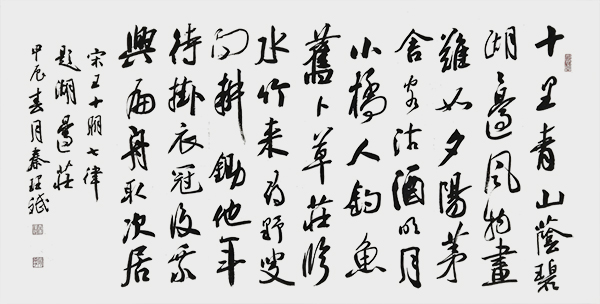 十里青山蔭碧
湖々邊風物畫
難如夕陽茅
舍客沽酒明月
小橋人釣魚
舊卜草莊臨
水竹来為野叟
问耕鋤他年
待掛衣冠後乘
興扁舟取次居
宋王十朋七律
題湖邊莊
甲辰春月秦